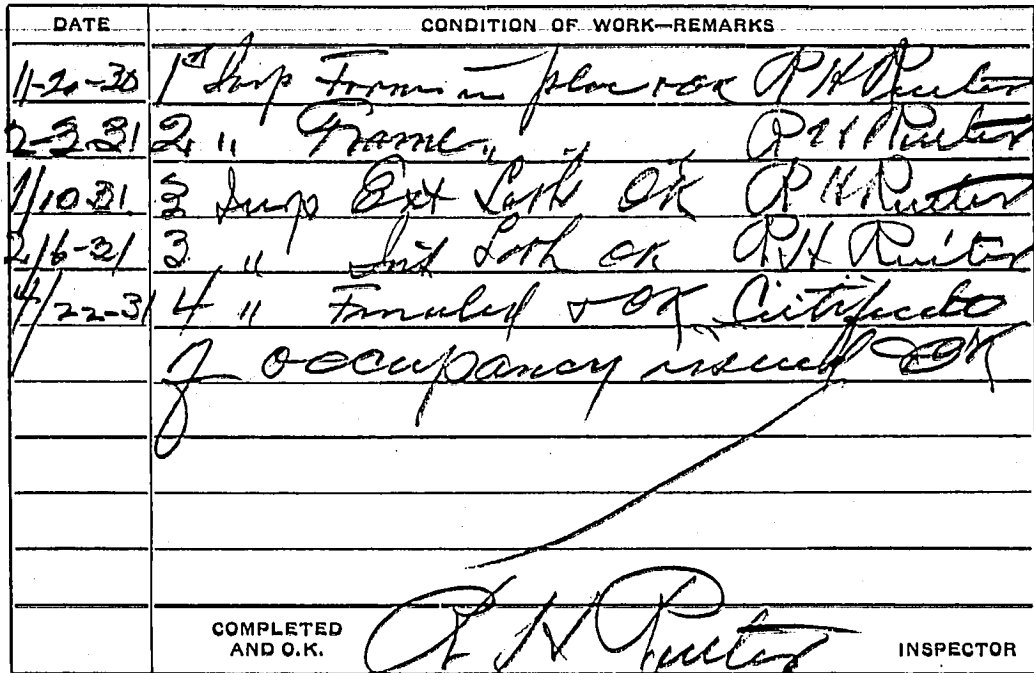 DATE CONDITION OF WORK—REMARKS
11-20-30 1st Insp Forms in place + OK R H Ruiter
2-3-31 2 " Frame " " R H Ruiter
1/10 31 3 Insp Ext Lath OK R H Ruiter
2/6-31 3 " Int Lath OK R H Ruiter
4/22-31 4 " Finaled + OK Certificate
of occupancy issued OK
COMPLETED AND O.K. R H Ruiter INSPECTOR